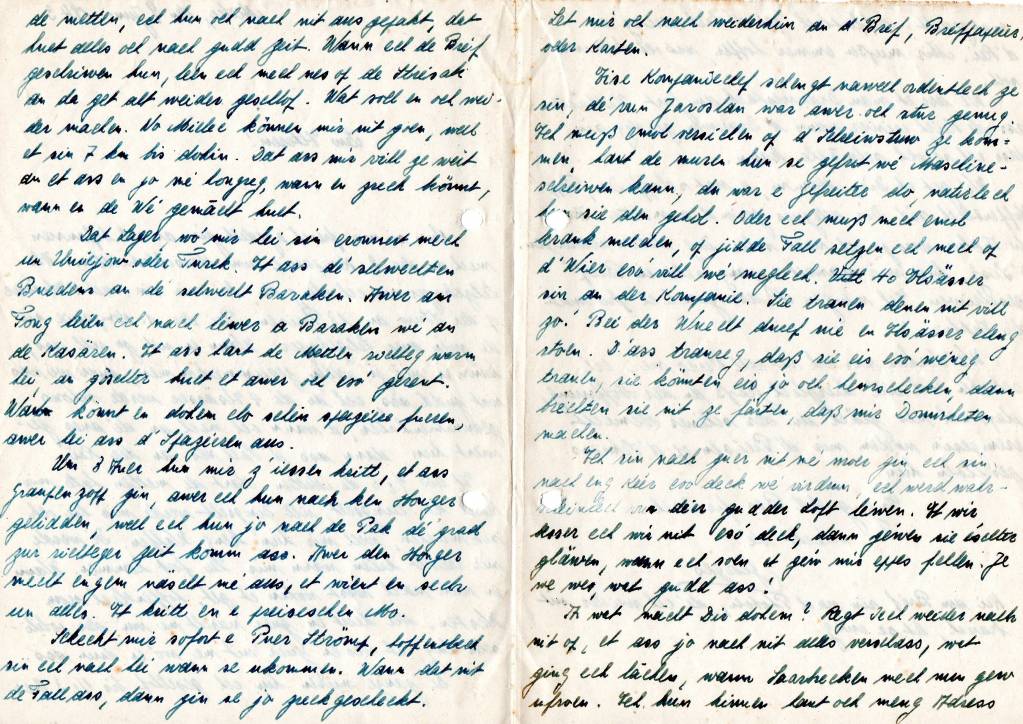 de metten, ech hun och nach nit ausgepakt, dat
huet alles och nach gudd Zeit. Wann ech de Bréf
geschriwen hun, leen ech mech nes of de Strisak
an da get alt weider geschlof. Wat soll en och wei-
der machen. No Mielec können mir nit goen, well
et sin 7 km bis dohin. Dat ass mir vill ze weit
an et ass en jo mé hongreg, wann en zreck könnt,
wann en de Wé gemacht huet.
Dat Lager wó mir hei sin eronnert mech
un Uniejow oder Turek. Et ass dé schwecht
Buedem an dé schwecht Baraken. Awer am
Fong leien ech nach liewer a Baraken wé an
de Kasären. Et ass haut de Metten richteg warm
hei, an gëschter huet et awer och esó gerent.
Wann könnt en dohem elo schéin spazéieren fueren,
awer hei ass d'Spazieren aus.
Um 3 Auer hun mir z'iessen kritt, et ass
Graupenzopp gin, awer ech hun nach ken Honger
gelidden, well ech hun jo nach de Pak dé grad
zur richteger Zeit komm ass. Awer den Honger
mecht engem näischt mé aus, et wiert en sech
un alles. Et kritt en e preiseschen Mo.
Schéckt mir sofort e Puer Strömp, hoffentlech
sin ech nach hei wann se ukommen. Wann dat nit
de Fall ass, dann gin se jo zreckgeschéckt.
Let mir och nach weiderhin an d'Bréf, Bréfpapeier,
oder Karten.
Eise Kompaniechef schengt nawell ordentlech ze
sin, dé vun Jaroslau war awer och stur genug.
Ech muss emol versichen of d'Schreiwstuw ze kom-
men, haut de muren hun se gefrot wé Maschine-
schreiwen kann, du war e Gefreiter do, natirlech
hun sie den geholl. Oder ech muß mech emol
krank melden, of jidde Fall setzen ech mech of
d'Wier esó vill wé meglech. 40 Elsässer
sin an der Kompanie. Sie trauen denen nit vill
zo! Bei der Wuecht duerf nie en Elsässer eleng
stoen. D'ass traureg, daß sie eis esó wéneg
trauen, sie könnten eis jo och hemschecken, dann
breichten sie nit ze färten, daß mir Dommheten
machen.
Ech sin nach guer nit mé moer gin, ech sin
nach eng Kéier esó deck wé virdrun, ech werd wahr-
scheinlech vun déer gudder Loft liewen. Et wir
besser ech wir nit esó deck, dann géwen sie éischter
gläwen, wann ech soen et géif mir eppes feelen. Je
ne weg, wat gudd ass!
A wat mächt Dir dohem? Regt Iech weider nach
nit of, et ass jo nach nit alles verschloss, wat
ging ech lächen, wann Saarbrecken mech mun gew
ufroen. Ech hun hinnen haut och meng Adress